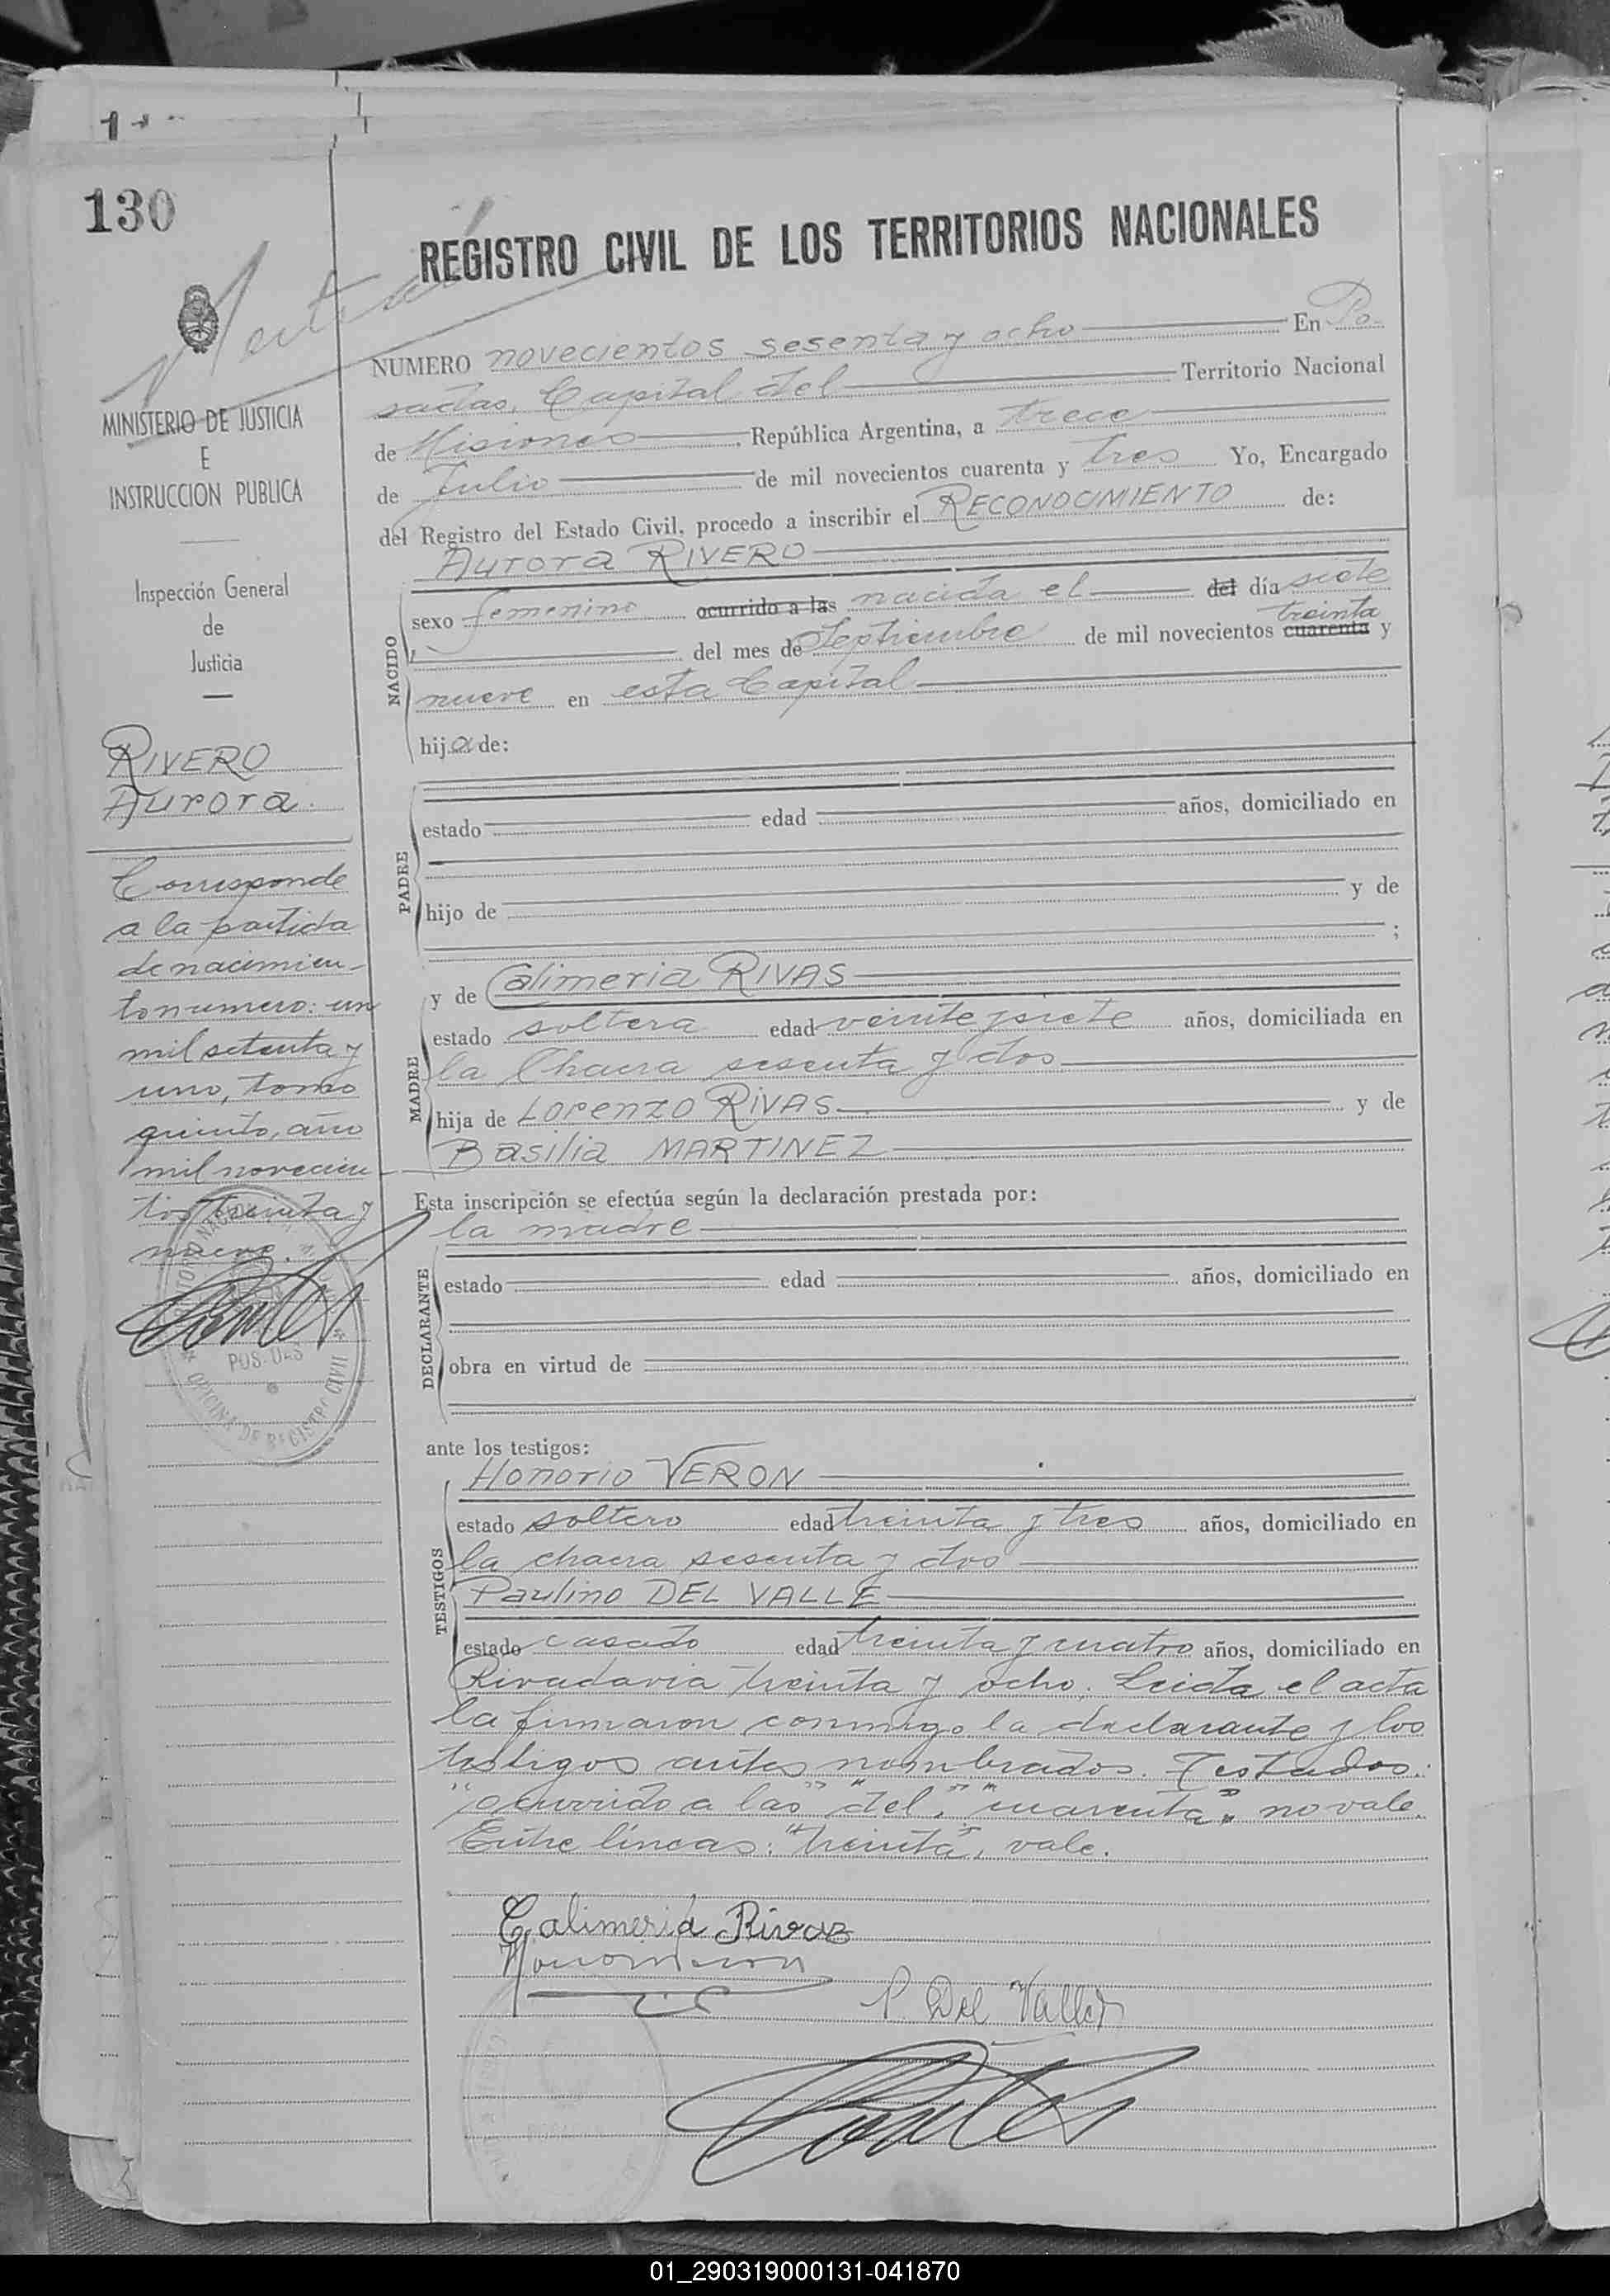 130
REGISTRO CIVIL DE LOS TERRITORIOS NACIONALES
MINISTERIO DE JUSTICIA
E
INSTRUCCION PUBLICA
Inspección General
de
Justicia
RIVERO
Aurora.
Corresponde
a la partida
de nacimien-
to numero: un
mil setenta y
uno, tomo
quinto, año
mil novecien-
tos treinta y
nueve.
POSADAS
OFICINA DE REGISTRO CIVIL
NUMERO novecientos sesenta y ocho En Po-
sadas, Capital del Territorio Nacional
de Misiones, República Argentina, a trece
de Julio de mil novecientos cuarenta y tres Yo, Encargado
del Registro del Estado Civil, procedo a inscribir el RECONOCIMIENTO de:
Aurora RIVERO
NACIDO
sexo femenino ocurrido a las nacida el del día siete
treinta
del mes de Septiembre de mil novecientos cuarenta y
nueve en esta Capital
hija de:
PADRE
estado edad años, domiciliado en
hijo de y de
;
MADRE
y de Calimeria RIVAS
estado soltera edad veinte y siete años, domiciliada en
la Chacra sesenta y dos
hija de Lorenzo RIVAS y de
Basilia MARTINEZ
Esta inscripción se efectúa según la declaración prestada por:
la madre
DECLARANTE
estado edad años, domiciliado en
obra en virtud de
ante los testigos:
TESTIGOS
Honorio VERON
estado soltero edad treinta y tres años, domiciliado en
la chacra sesenta y dos
Paulino DEL VALLE
estado casado edad treinta y cuatro años, domiciliado en
Rivadavia treinta y ocho. Leida el acta
la firmaron conmigo la declarante y los
testigos antes nombrados. Testados:
"ocurrido a las" "del", "cuarenta", no vale.
Entre líneas: "treinta", vale.
Calimeria Rivaz
P. Del Valle
01_290319000131-041870